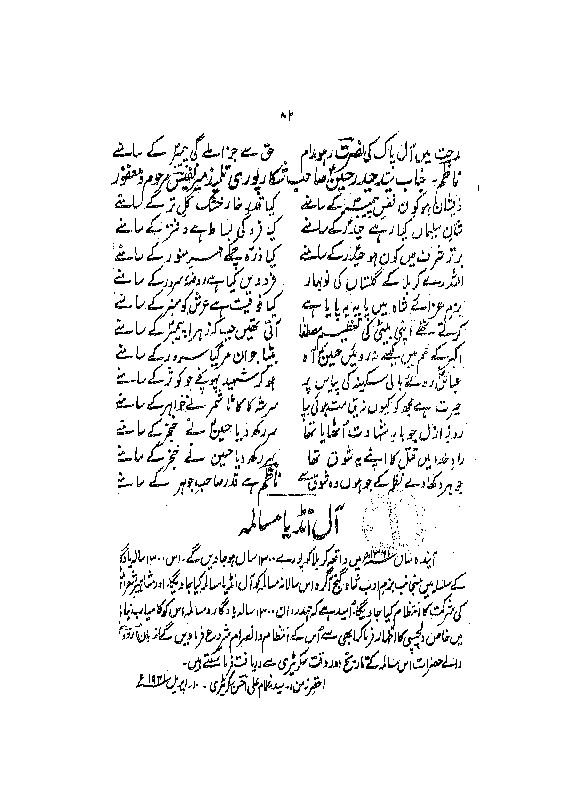 ۸۲
مدحت میں آل پاک کی نصرت رہو مدام حق سے جزا ملے گی پیمبر کے سامنے
ناظم۔ جناب سید حیدر حسین صاحب شکارپوری تلمیذ میر نفیس مرحوم و مغفور
ذیشان ہو کون نفس پیمبر کے سامنے کیا قدر خار خشک گل تر کے سامنے
شان سلیماں کیا رہے حیدر کے سامنے کیا فرد کی بساط ہے دفتر کے سامنے
برتر شرف میں کون ہو حیدر کے سامنے کیا ذرہ چمکے مہر منور کے سامنے
اللہ رے کربلا کے گلستاں کی نو بہار فردوس کیا ہے روضۂ سرور کے سامنے
بزم عزائے شاہ میں پایہ یہ پایا ہے کیا فوقیت ہے عرش کو منبر کے سامنے
کرتے تھے اپنی بیٹی کی تعظیم مصطفیٰ آتی تھیں جب کہ زہرا پیمبر کے سامنے
اکبر کے غم میں کیسے نہ روئیں حسین آہ بیٹا جوان مر گیا سرور کے سامنے
عباس رو دئے بالی سکینہ کی پیاس پر ہو کر شہید پہونچے جو کوثر کے سامنے
حیرت ہے مجھ کو کیوں نہ قیامت ہوئی بپا سر شہ کا کاٹا شمر نے خواہر کے سامنے
روز ازل جو بار شہادت اٹھایا تھا سر رکھ دیا حسین نے خنجر کے سامنے
راہ خدا میں قتل کا اپنے یہ شوق تھا پھر رکھ دیا حسین نے خنجر کے سامنے
جوہر دکھا دے نظم کے جو ہوں وہ شوق سے ناظم ہے قدر صاحب جوہر کے سامنے
آل انڈیا مسالمہ
آیندہ سال میں واقعہ کربلا کو پورے ۱۳۰۰ سال ہو جاویں گے۔ اس ۱۳۰۰ سالہ یادگار
کے سلسلہ میں منجانب بزم ادب شاہ گنج آگرہ اس سالانہ مسالمہ کو آل انڈیا مسالمہ کیا جاویگا، اور مشاہیر شعرا
کی شرکت کا انتظام کیا جاویگا۔ امید ہے کہ ہمدردان ۱۳۰۰ سالہ یادگار و مسالمہ اس کو کامیاب بنانے
میں خاص دلچسپی کا اظہار فرما کر ابھی سے اس کے انتظام و انصرام شروع فرماویں گے
والے حضرات اس مسالمہ کے تاریخ اور وقت سکریٹری سے دریافت فرما سکتے ہیں۔
احقر زمن۔ سید غلام علی احسن سکریٹری۔ ۱۰۔ اپریل